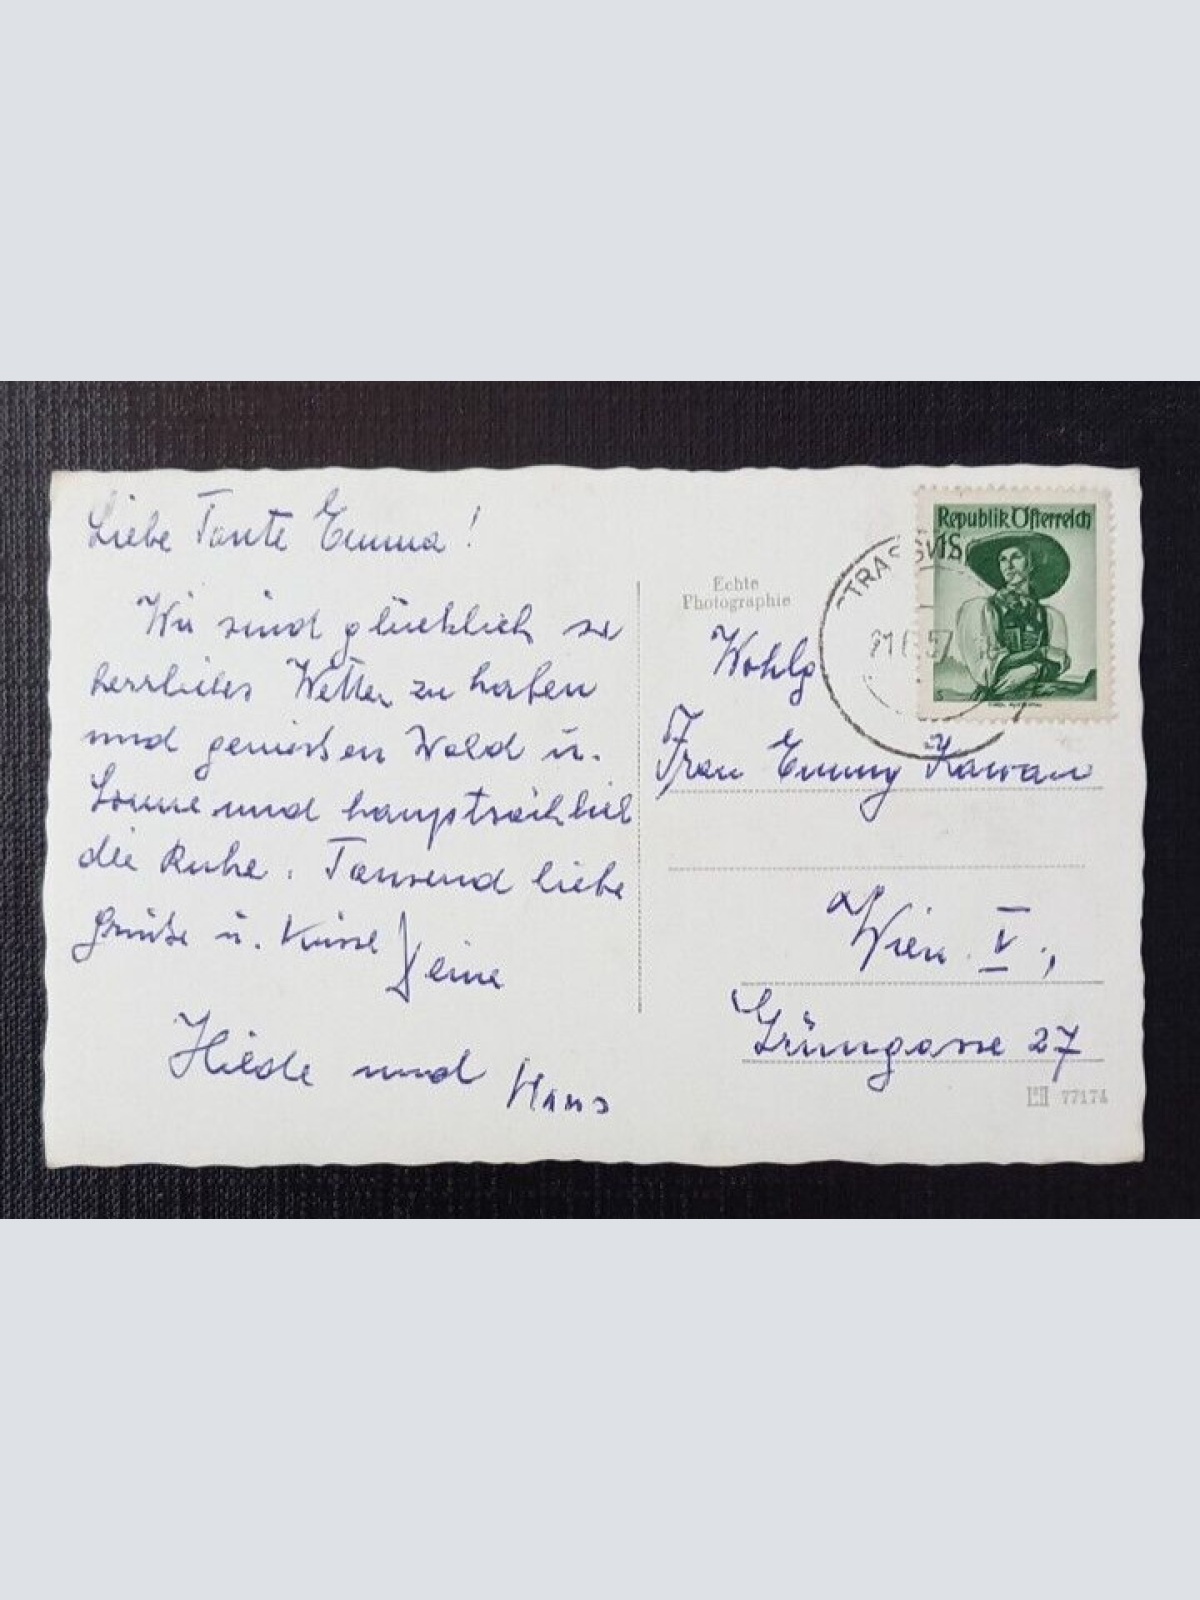 Liebe Tante Emma!
Wir sind glücklich so
herrliches Wetter zu haben
und geniessen Wald u.
Sonne und hauptsächlich
die Ruhe. Tausend liebe
Grüße u. Küsse Deine
Hilde und Hans
Republik Österreich
1S
Echte
Photographie
Wohlg
Frau Emmy Kawan
Wien V.,
Grüngasse 27
77174